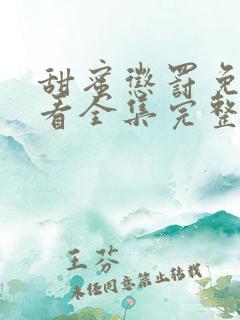 甜蜜懲罰免
看全集完整
王芬
未经同意禁止转载